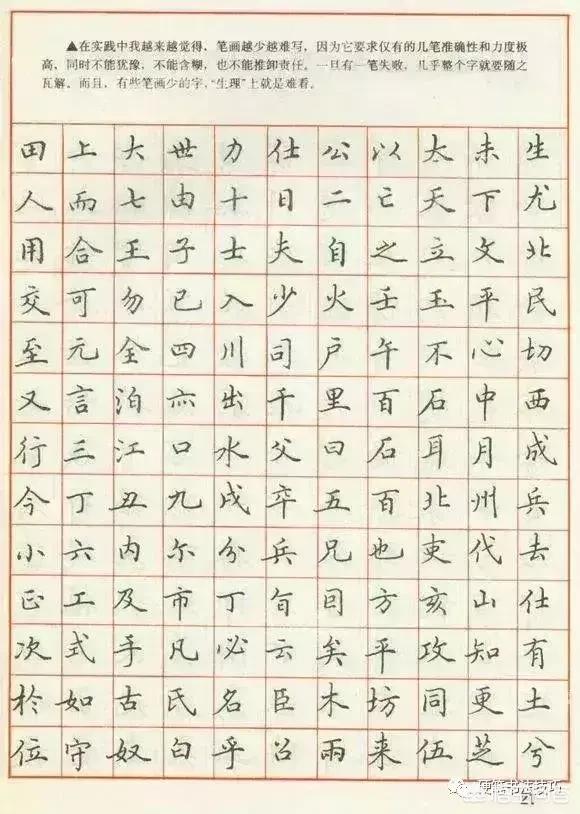 ▲在实践中我越来越觉得，笔画越少越难写，因为它要求仅有的几笔准确性和力度极
高，同时不能犹豫，不能含糊，也不能推卸责任。一旦有一笔失败，几乎整个字就要随之
瓦解。而且，有些笔画少的字，“生理”上就是难看。
田上大世力仕公以太未生
人而七由十日二亡天下尤
用合王子士夫自之立文北
交可勿已入少火壬玉平民
至元全四川司户午不心切
又言泊亦出千里百石中西
行三江口水父曰石耳月成
今丁丑九戌卒五百北州兵
小六内尔分兵兄也吏代去
正工及市丁旬目方亥山仕
次式手凡必云矣平攻知有
於如古氏名臣木坊同更土
位守奴白乎召雨来伍芝兮
硬笔书法技巧
21